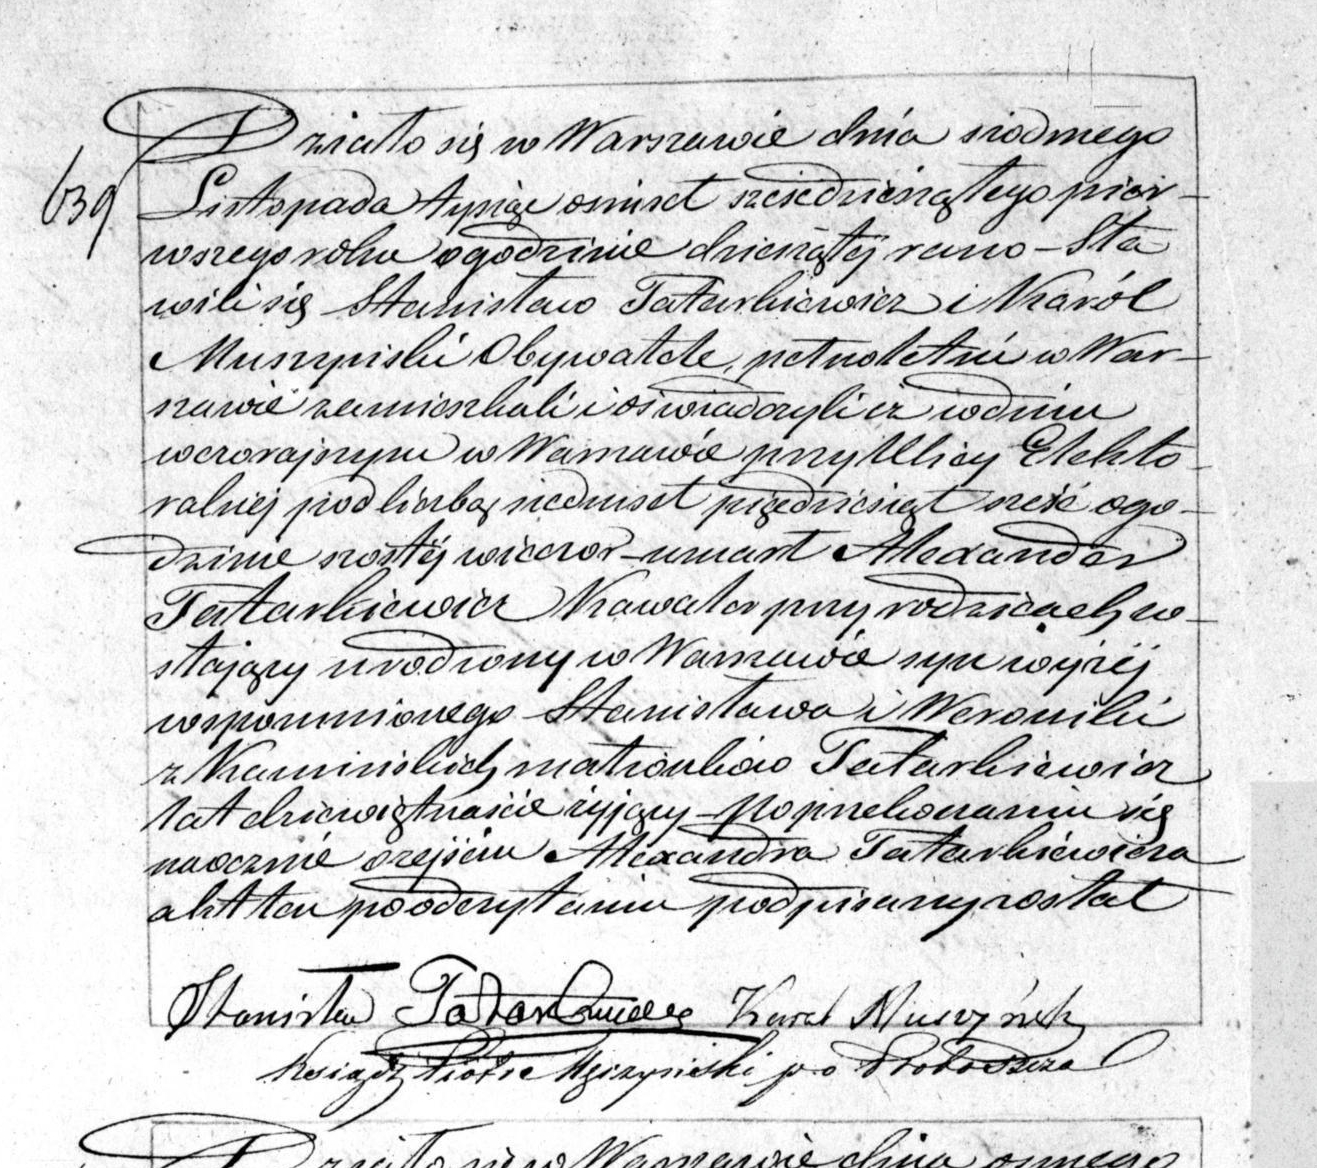 639
Działo się w Warszawie dnia siodmego
Listopada tysiąc ośmset sześcdziesiątego pier-
wszego roku o godzinie dziesiątéj rano – Sta
wili się Stanisław Tatarkiewicz i Karól
Muszyński Obywatele, pełnoletni w War-
szawie zamieszkali i oświadczyli iż w dniu
wczorajszym w Warszawie przy Ulicy Elekto-
ralnéj pod liczbą siedmset pięcdziesiąt sześć o go-
dzinie szostéj wieczor – umarł Alexander
Tatarkiewicz Kawaler przy rodzicach zo-
stający urodzony w Warszawie syn wyżéj
wspomnionego Stanisława i Weroniki
z Kamińskich małżonków Tatarkiewicz
lat dziewiętnaście żyjący – Po przekonaniu się
naocznie o zejściu Alexandra Tatarkiewicza
akt ten po odczytaniu podpisany został
Stanisław Tatarkiewicz Karol Muszyński
Ksiądz Piotr p o Proboszcza
Działo się w Warszawie dnia osmego